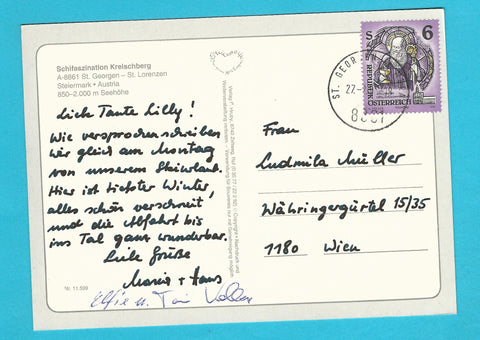 Schifaszination Kreischberg
A-8861 St. Georgen – St. Lorenzen
Steiermark • Austria
850–2.000 m Seehöhe
Liebe Tante Lilly!
Wie versprochen schreiben
wir gleich am Montag
von unserem Skiurlaub.
Hier ist tiefster Winter,
alles schön verschneit
und die Abfahrt bis
ins Tal ganz wunderbar.
Liebe Grüße
Maria + Hans
Elfie u.
Nr. 11.599
S 6
REPUBLIK
ÖSTERREICH
ST. GEOR
22.
Frau
Ludmila Müller
Währingergürtel 15/35
1180 Wien